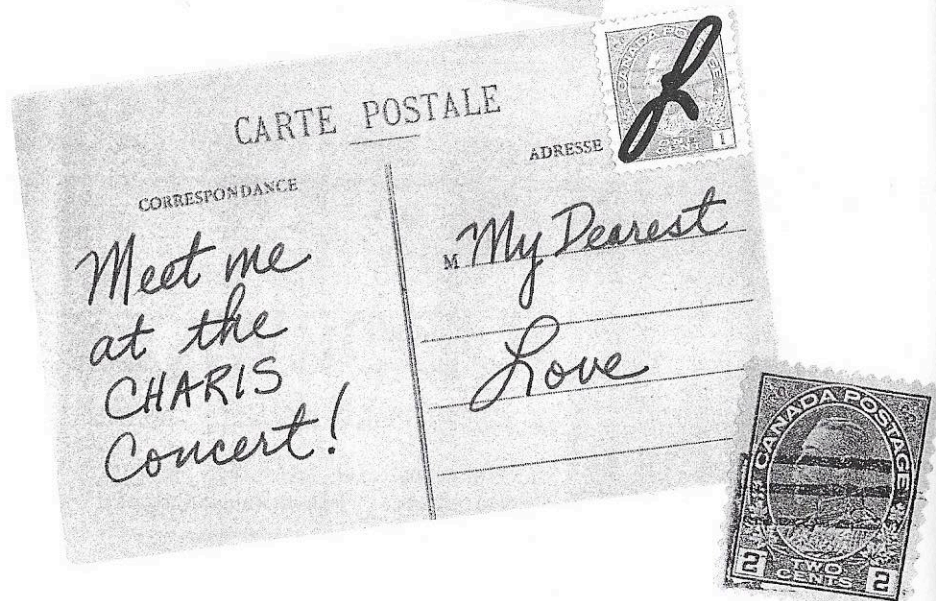 CARTE POSTALE
CORRESPONDANCE
ADRESSE
Meet me
at the
CHARIS
Concert!
M My Dearest
Love
CANADA POSTAGE
CENT 1
CANADA POSTAGE
2 TWO CENTS 2